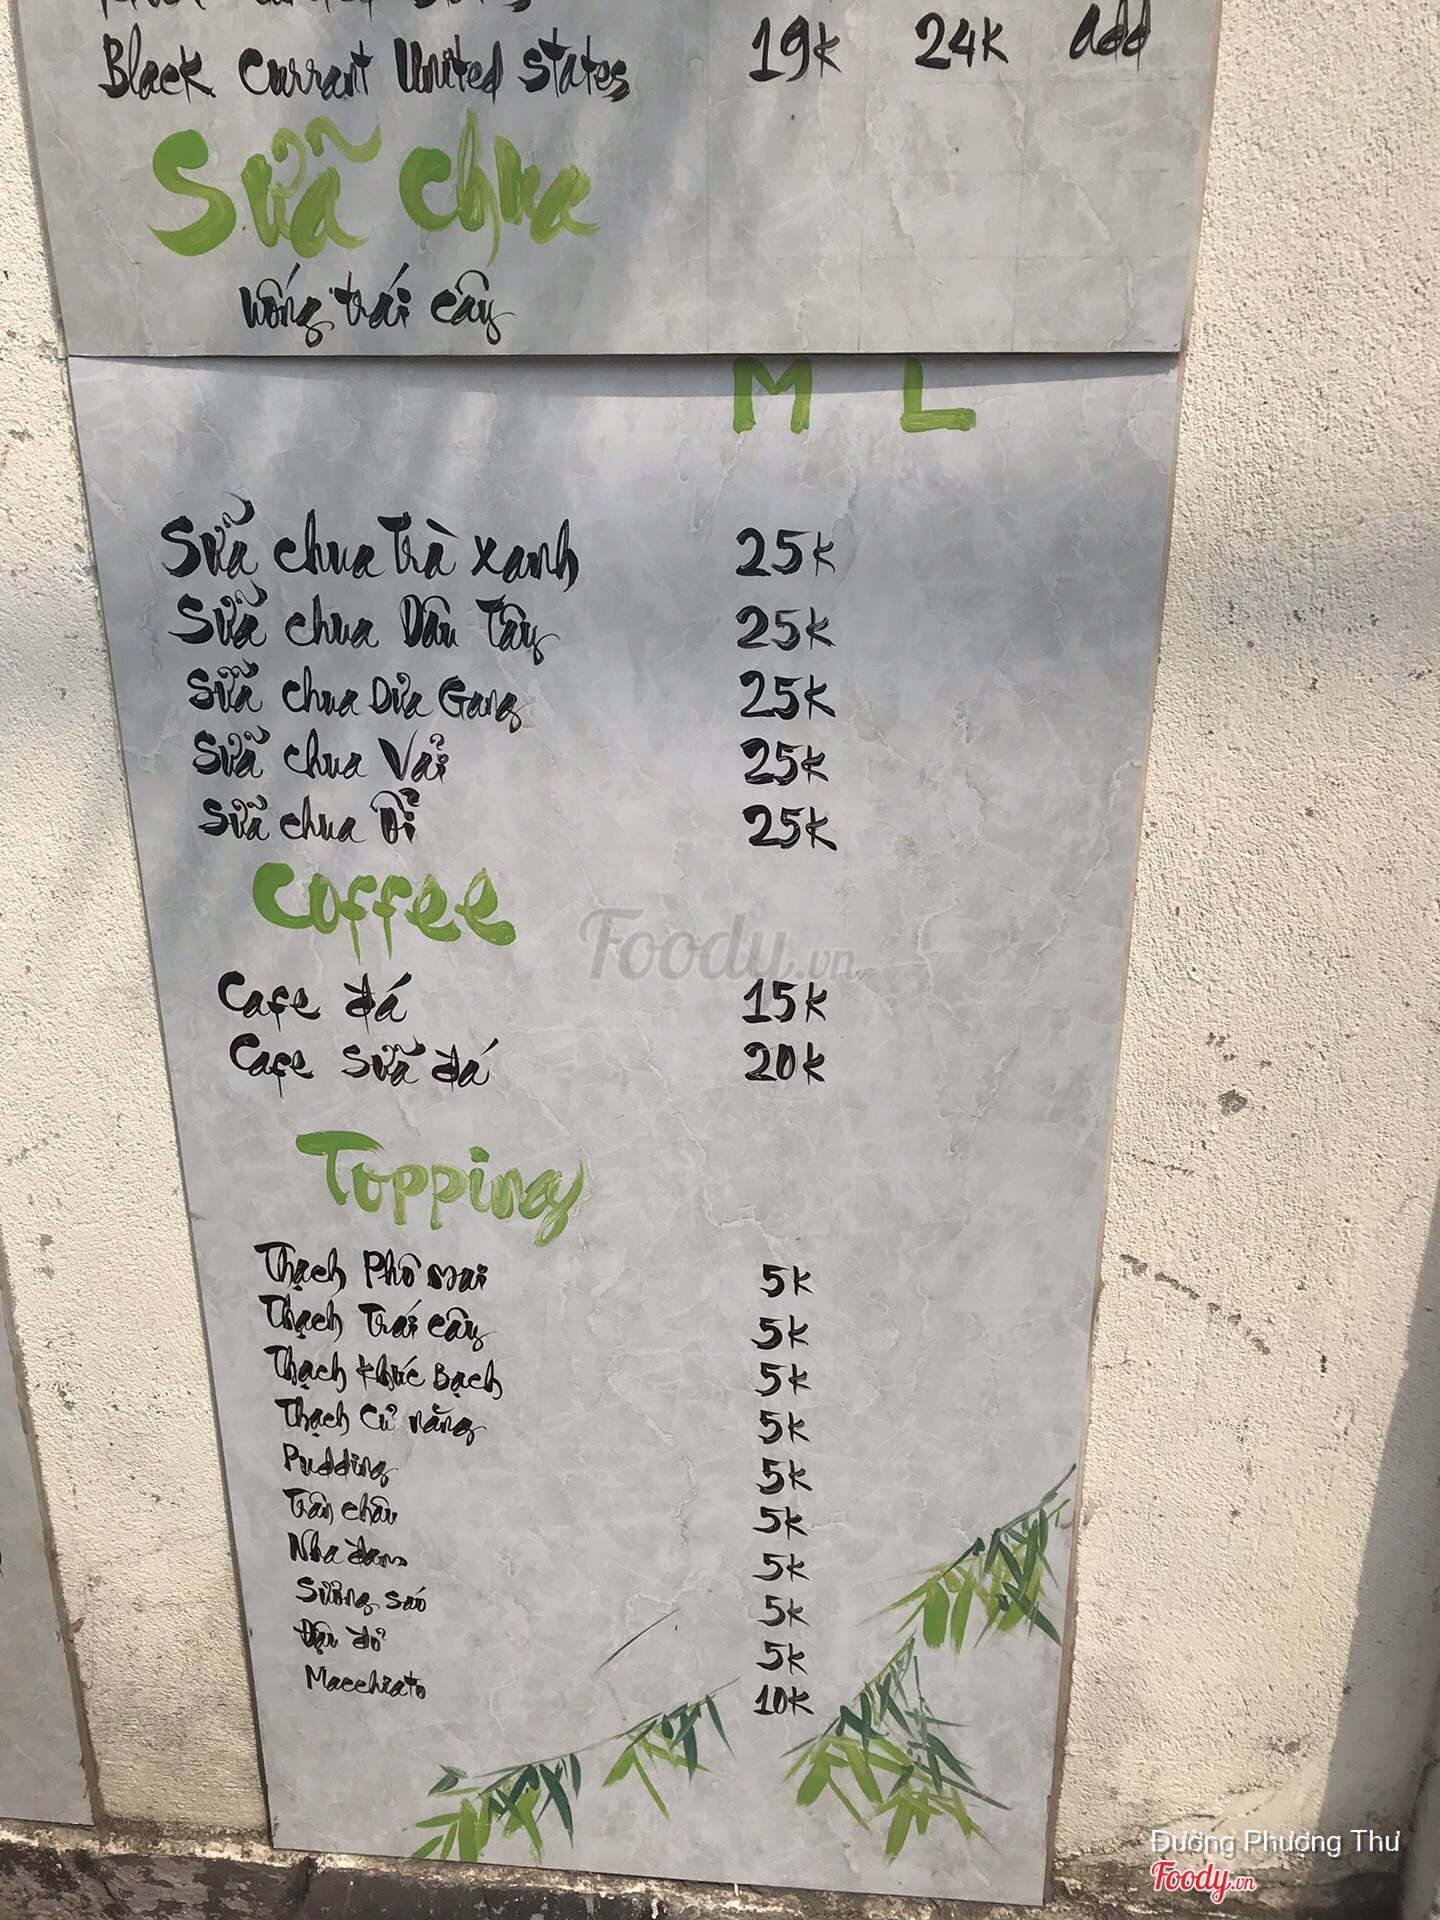 Black Currant United States 19k 24k add
Sữa chua
uống trái cây
M L
Sữa chua Trà xanh 25k
Sữa chua Dâu Tây 25k
Sữa chua Dưa Gang 25k
Sữa chua Vải 25k
Sữa chua ổi 25k
Coffee
Cafe đá 15k
Cafe sữa đá 20k
Topping
Thạch Phô mai 5k
Thạch Trái cây 5k
Thạch Khúc Bạch 5k
Thạch Củ năng 5k
Pudding 5k
Trân châu 5k
Nha đam 5k
Sương sáo 5k
Đậu đỏ 5k
Macchiato 10k
Foody.vn
Đường Phượng Thư
Foody.vn